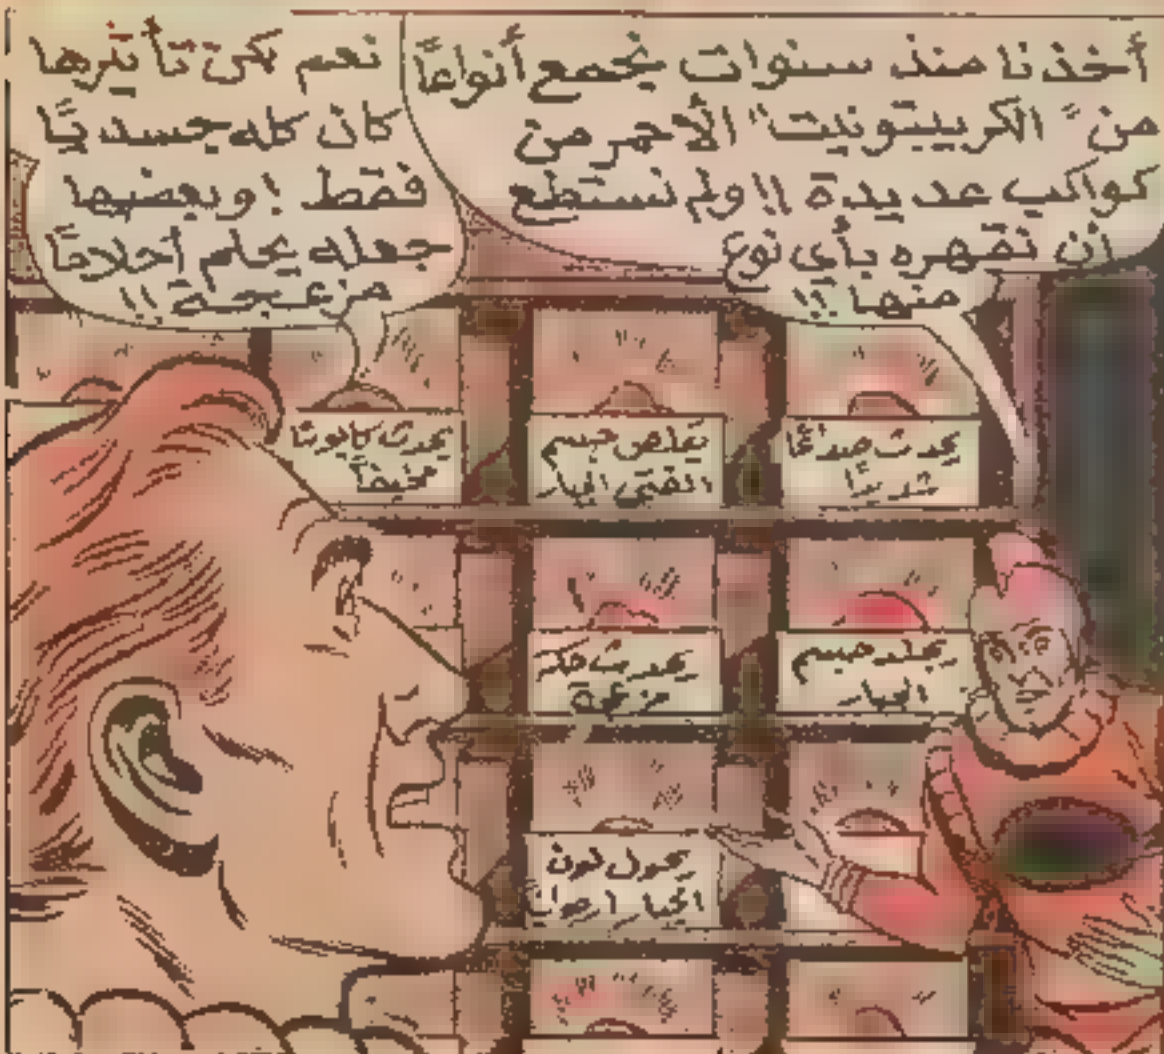 أخذنا منذ سنوات نجمع أنواعًا
من "الكريبتونيت" الأحمر من
كواكب عديدة !! ولم نستطع
أن نقهره بأي نوع
منها !!
نعم لكن تأثيرها
كان كله جسديًّا
فقط ! وبعضها
جعله يحلم أحلامًا
مزعجة !!
يحدث صداعًا
شديدًا
يقلص جسم
الفتى الجبار
يحدث كابوسًا
مخيفًا
يجلد جسم
الجبار
يحدث
مزعجة
يحول لون
الجبار